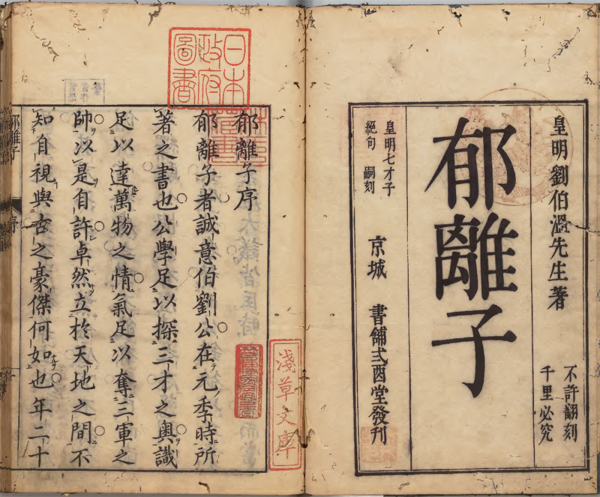 皇明劉伯溫先生著
不許翻刻
千里必究
郁離子
皇明七才子
絕句 嗣刻
京城 書舖弍酉堂發刊
日本
政府
圖書
淺草文庫
郁離子序
郁離子者誠意伯劉公在元季時所
著之書也公學足以探三才之奥識
足以達萬物之情氣足以奪三軍之
帥以是自許卓然立於天地之間不
知自視與古之豪傑何如也年二十
郁離子